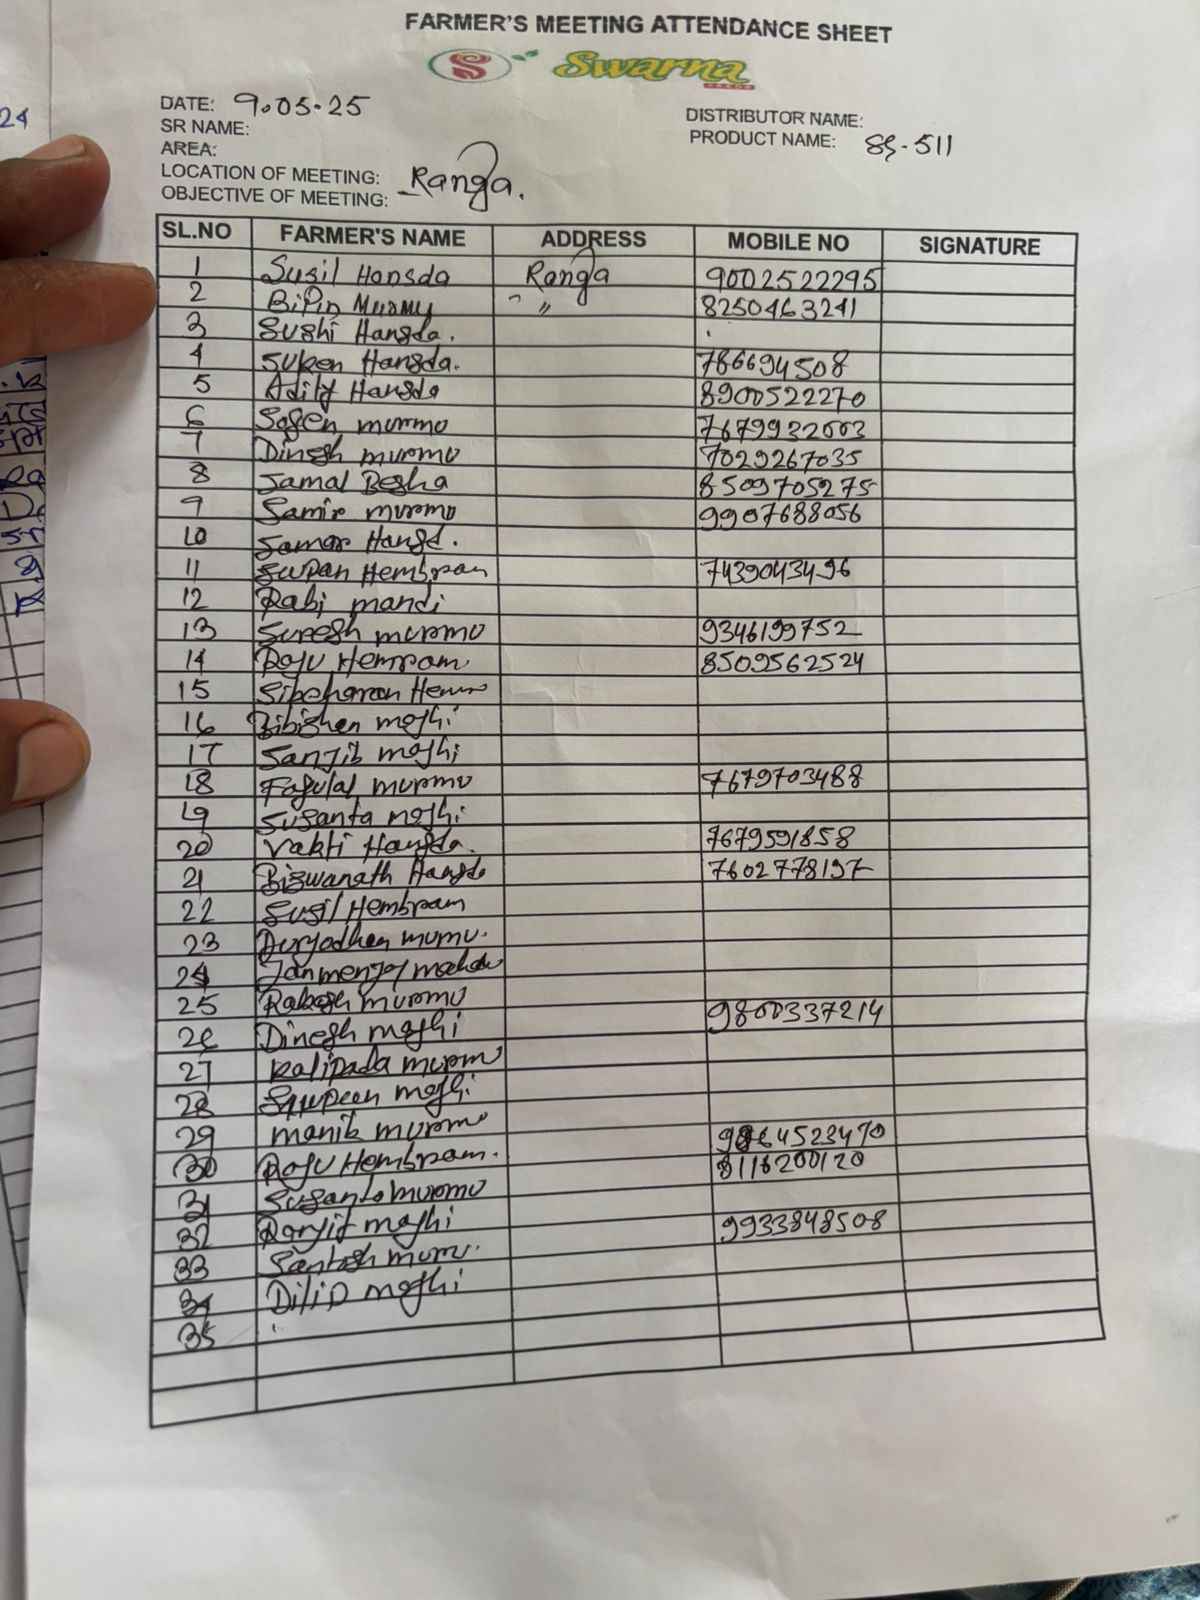 FARMER'S MEETING ATTENDANCE SHEET
S Swarna
DATE: 9.05.25
SR NAME:
AREA:
LOCATION OF MEETING: Ranga.
OBJECTIVE OF MEETING:
DISTRIBUTOR NAME:
PRODUCT NAME: SS-511
SL.NO FARMER'S NAME ADDRESS MOBILE NO SIGNATURE
1 Susil Hansda Ranga 9002522295
2 Bipin Murmu " 8250463241
3 Sushi Hansda.
4 Suken Hansda. 786694508
5 Adity Hansda 8900522270
6 Sagen murmo 7679932003
7 Dinesh murmo 7029267035
8 Jamal Besha 8509705275
9 Samir murmo 9907688056
10 Samar Hansd.
11 Swapan Hembram 7439043496
12 Rabi mandi
13 Suresh murmo 9346199752
14 Raju Hemram 8509562524
15 Hemr
16 Bibishan majhi
17 Sanjib majhi
18 Fagulal murmo 7679703488
19 Susanta majhi
20 Vakti Hansda. 7679591858
21 Biswanath Hansda 7602778197
22 Susil Hembram
23 Durjodhan mumu.
24 Janmenjoy
25 Rakesh murmo 9800337214
26 Dinesh majhi
27 Kalipada murmo
28 majhi
29 manik murmo 4523470
30 Raju Hembram. 8116200120
31 Susanto murmo
32 Ranjit majhi 9933848508
33 Santosh murm.
34 Dilip majhi
35